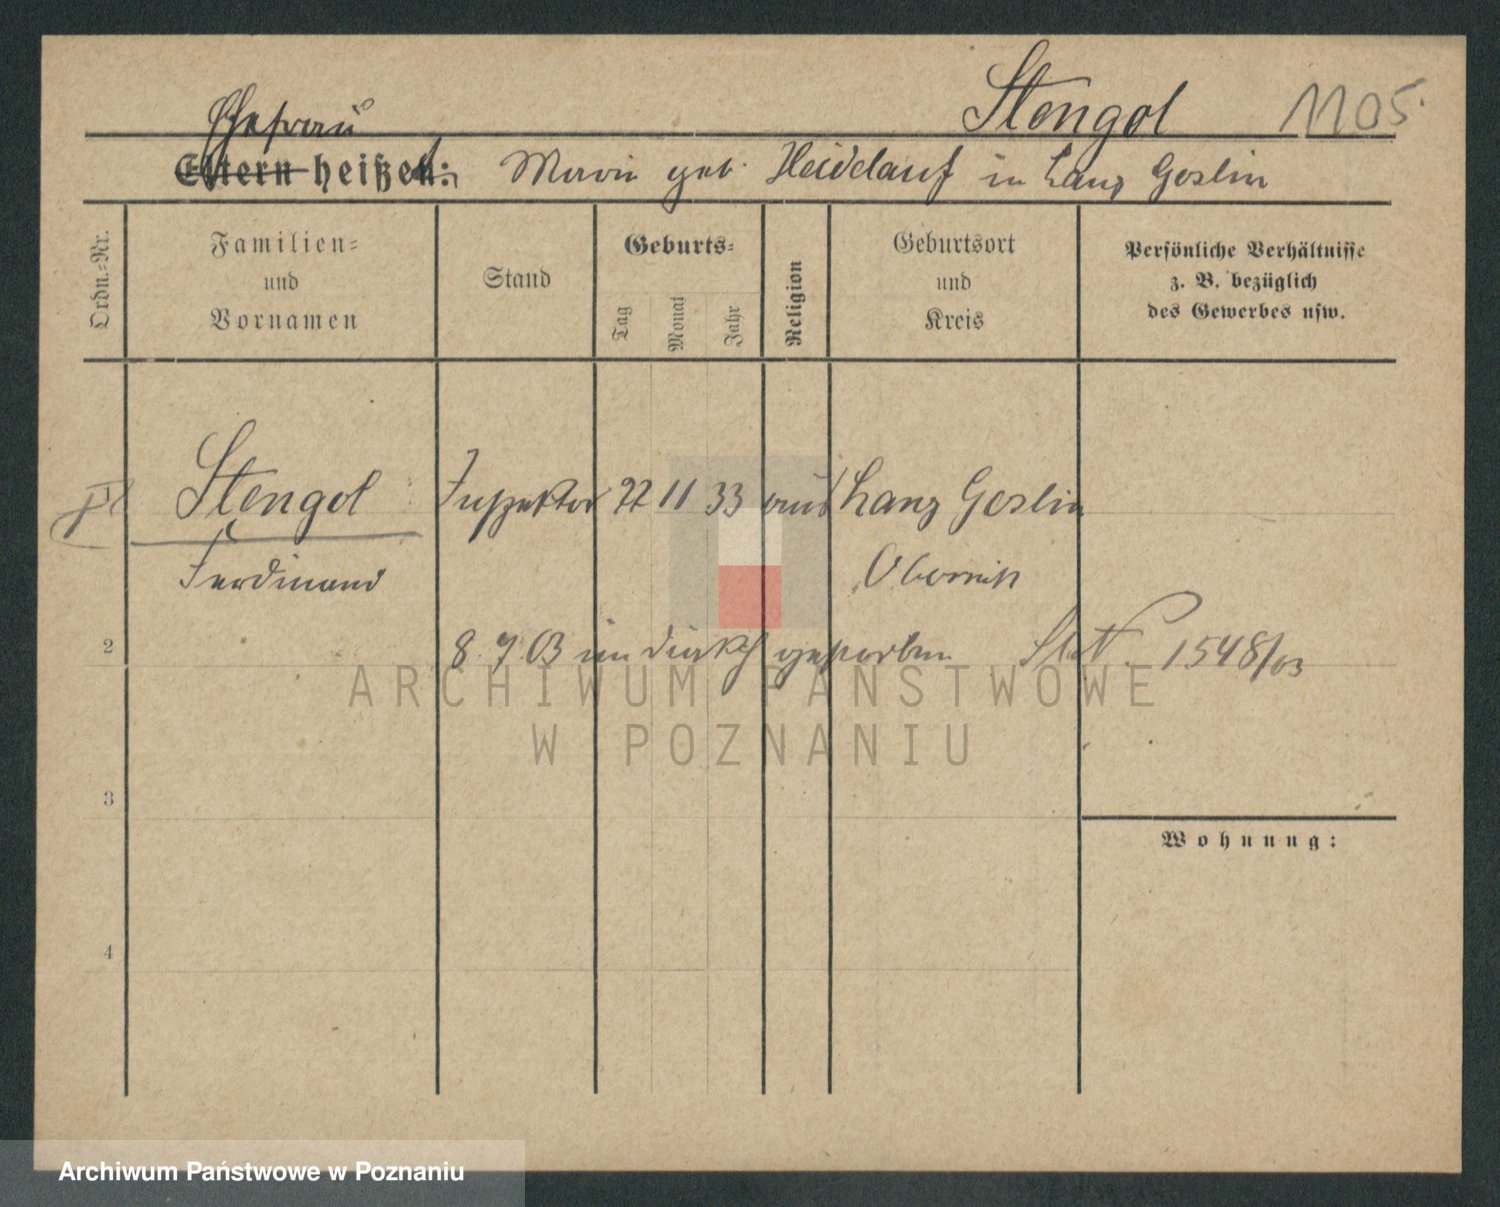 Stengel 1105
Ehefrau
Eltern heißen: Marie geb. Heidelauf in Lang Goslin
Ordn.-Nr.
Familien-
und
Vornamen
Stand
Geburts-
Tag
Monat
Jahr
Religion
Geburtsort
und
Kreis
Persönliche Verhältnisse
z. B. bezüglich
des Gewerbes usw.
Stengel Inspektor 22 11 33 Lang Goslin
Ferdinand Obornik
2 8. 7. 03 gestorben St. N. 1548/03
ARCHIWUM PAŃSTWOWE
W POZNANIU
3
Wohnung:
4
Archiwum Państwowe w Poznaniu